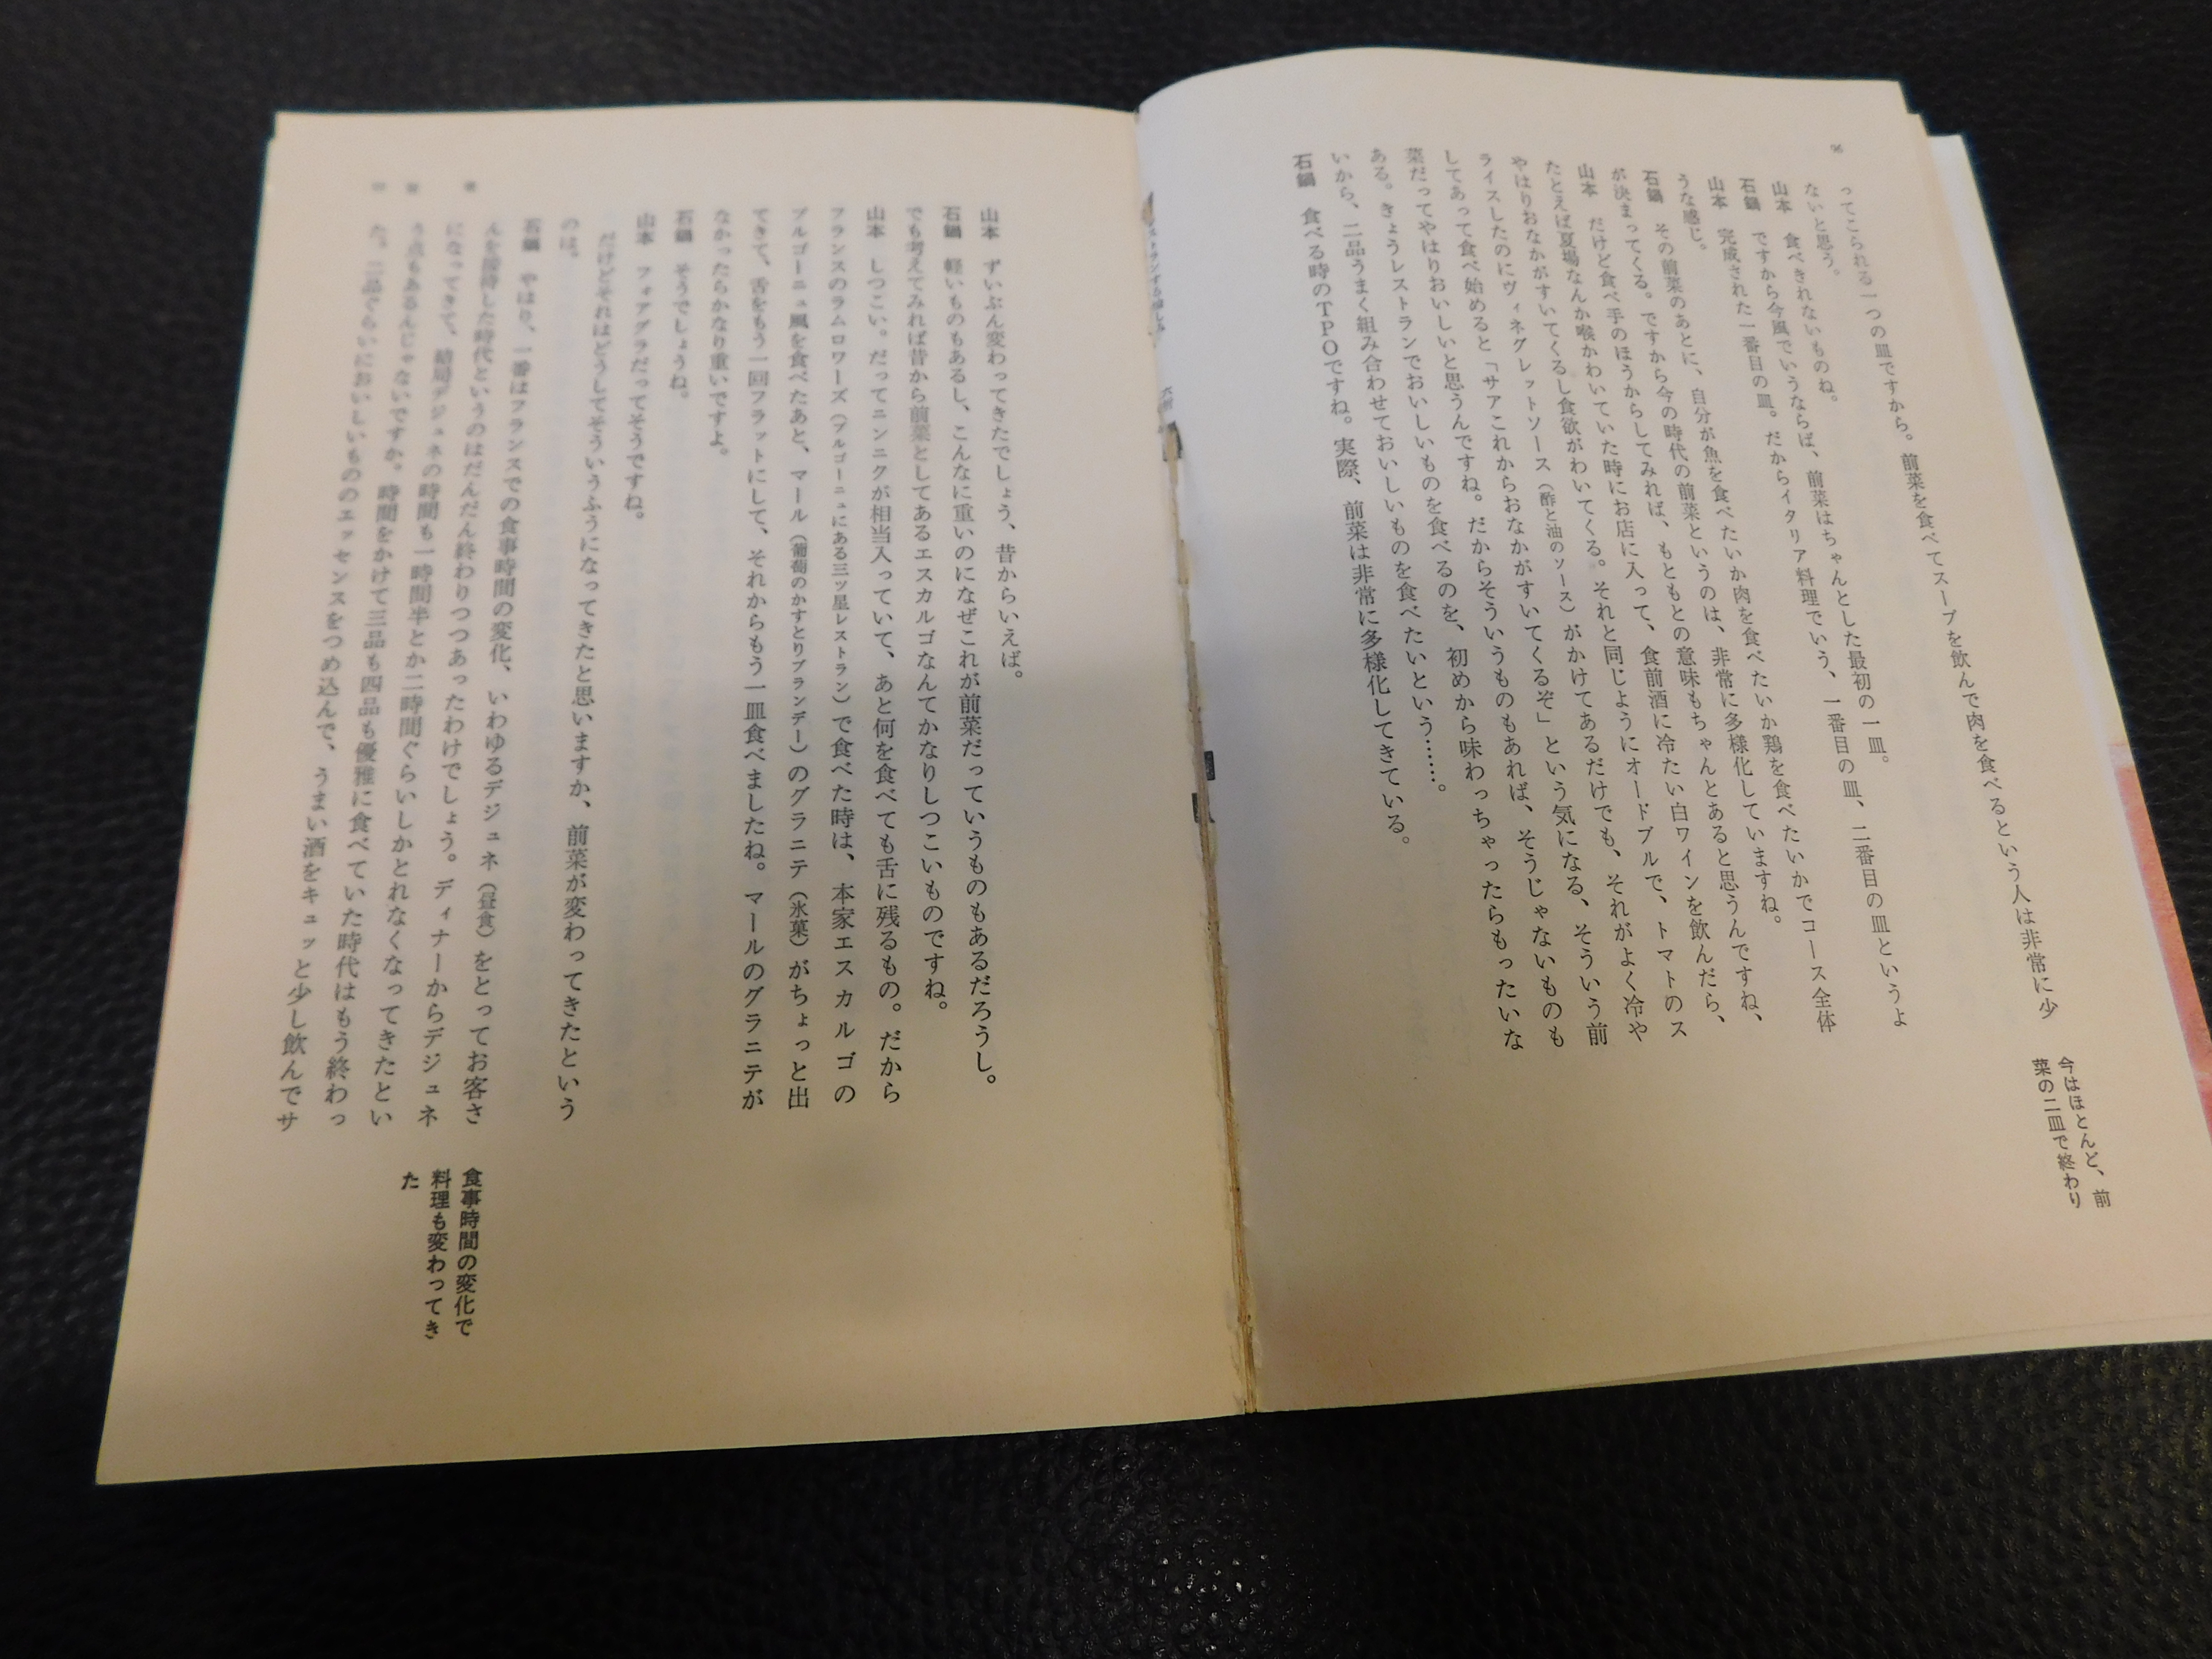 96
ってこられる一つの皿ですから。前菜を食べてスープを飲んで肉を食べるという人は非常に少
ないと思う。
山本　食べきれないものね。
石鍋　ですから今風でいうならば、前菜はちゃんとした最初の一皿。
山本　完成された一番目の皿。だからイタリア料理でいう、一番目の皿、二番目の皿というよ
うな感じ。
石鍋　その前菜のあとに、自分が魚を食べたいか肉を食べたいか鶏を食べたいかでコース全体
が決まってくる。ですから今の時代の前菜というのは、非常に多様化していますね。
山本　だけど食べ手のほうからしてみれば、もともとの意味もちゃんとあると思うんですね、
たとえば夏場なんか喉かわいていた時にお店に入って、食前酒に冷たい白ワインを飲んだら、
やはりおなかがすいてくるし食欲がわいてくる。それと同じようにオードブルで、トマトのス
ライスしたのにヴィネグレットソース（酢と油のソース）がかけてあるだけでも、それがよく冷や
してあって食べ始めると「サアこれからおなかがすいてくるぞ」という気になる、そういう前
菜だってやはりおいしいと思うんですね。だからそういうものもあれば、そうじゃないものも
ある。きょうレストランでおいしいものを食べるのを、初めから味わっちゃったらもったいな
いから、二品うまく組み合わせておいしいものを食べたいという……。
石鍋　食べる時のTPOですね。実際、前菜は非常に多様化してきている。
今はほとんど、前
菜の二皿で終わり
山本　ずいぶん変わってきたでしょう、昔からいえば。
石鍋　軽いものもあるし、こんなに重いのになぜこれが前菜だっていうものもあるだろうし。
でも考えてみれば昔から前菜としてあるエスカルゴなんてかなりしつこいものですね。
山本　しつこい。だってニンニクが相当入っていて、あと何を食べても舌に残るもの。だから
フランスのラムロワーズ（ブルゴーニュにある三ツ星レストラン）で食べた時は、本家エスカルゴの
ブルゴーニュ風を食べたあと、マール（葡萄のかすとりブランデー）のグラニテ（氷菓）がちょっと出
てきて、舌をもう一回フラットにして、それからもう一皿食べましたね。マールのグラニテが
なかったらかなり重いですよ。
石鍋　そうでしょうね。
山本　フォアグラだってそうですね。
だけどそれはどうしてそういうふうになってきたと思いますか、前菜が変わってきたという
のは。
石鍋　やはり、一番はフランスでの食事時間の変化、いわゆるデジュネ（昼食）をとってお客さ
んを接待した時代というのはだんだん終わりつつあったわけでしょう。ディナーからデジュネ
になってきて、結局デジュネの時間も一時間半とか二時間ぐらいしかとれなくなってきたとい
う点もあるんじゃないですか。時間をかけて三品も四品も優雅に食べていた時代はもう終わっ
た。二品ぐらいにおいしいもののエッセンスをつめ込んで、うまい酒をキュッと少し飲んでサ
食事時間の変化で
料理も変わってき
た